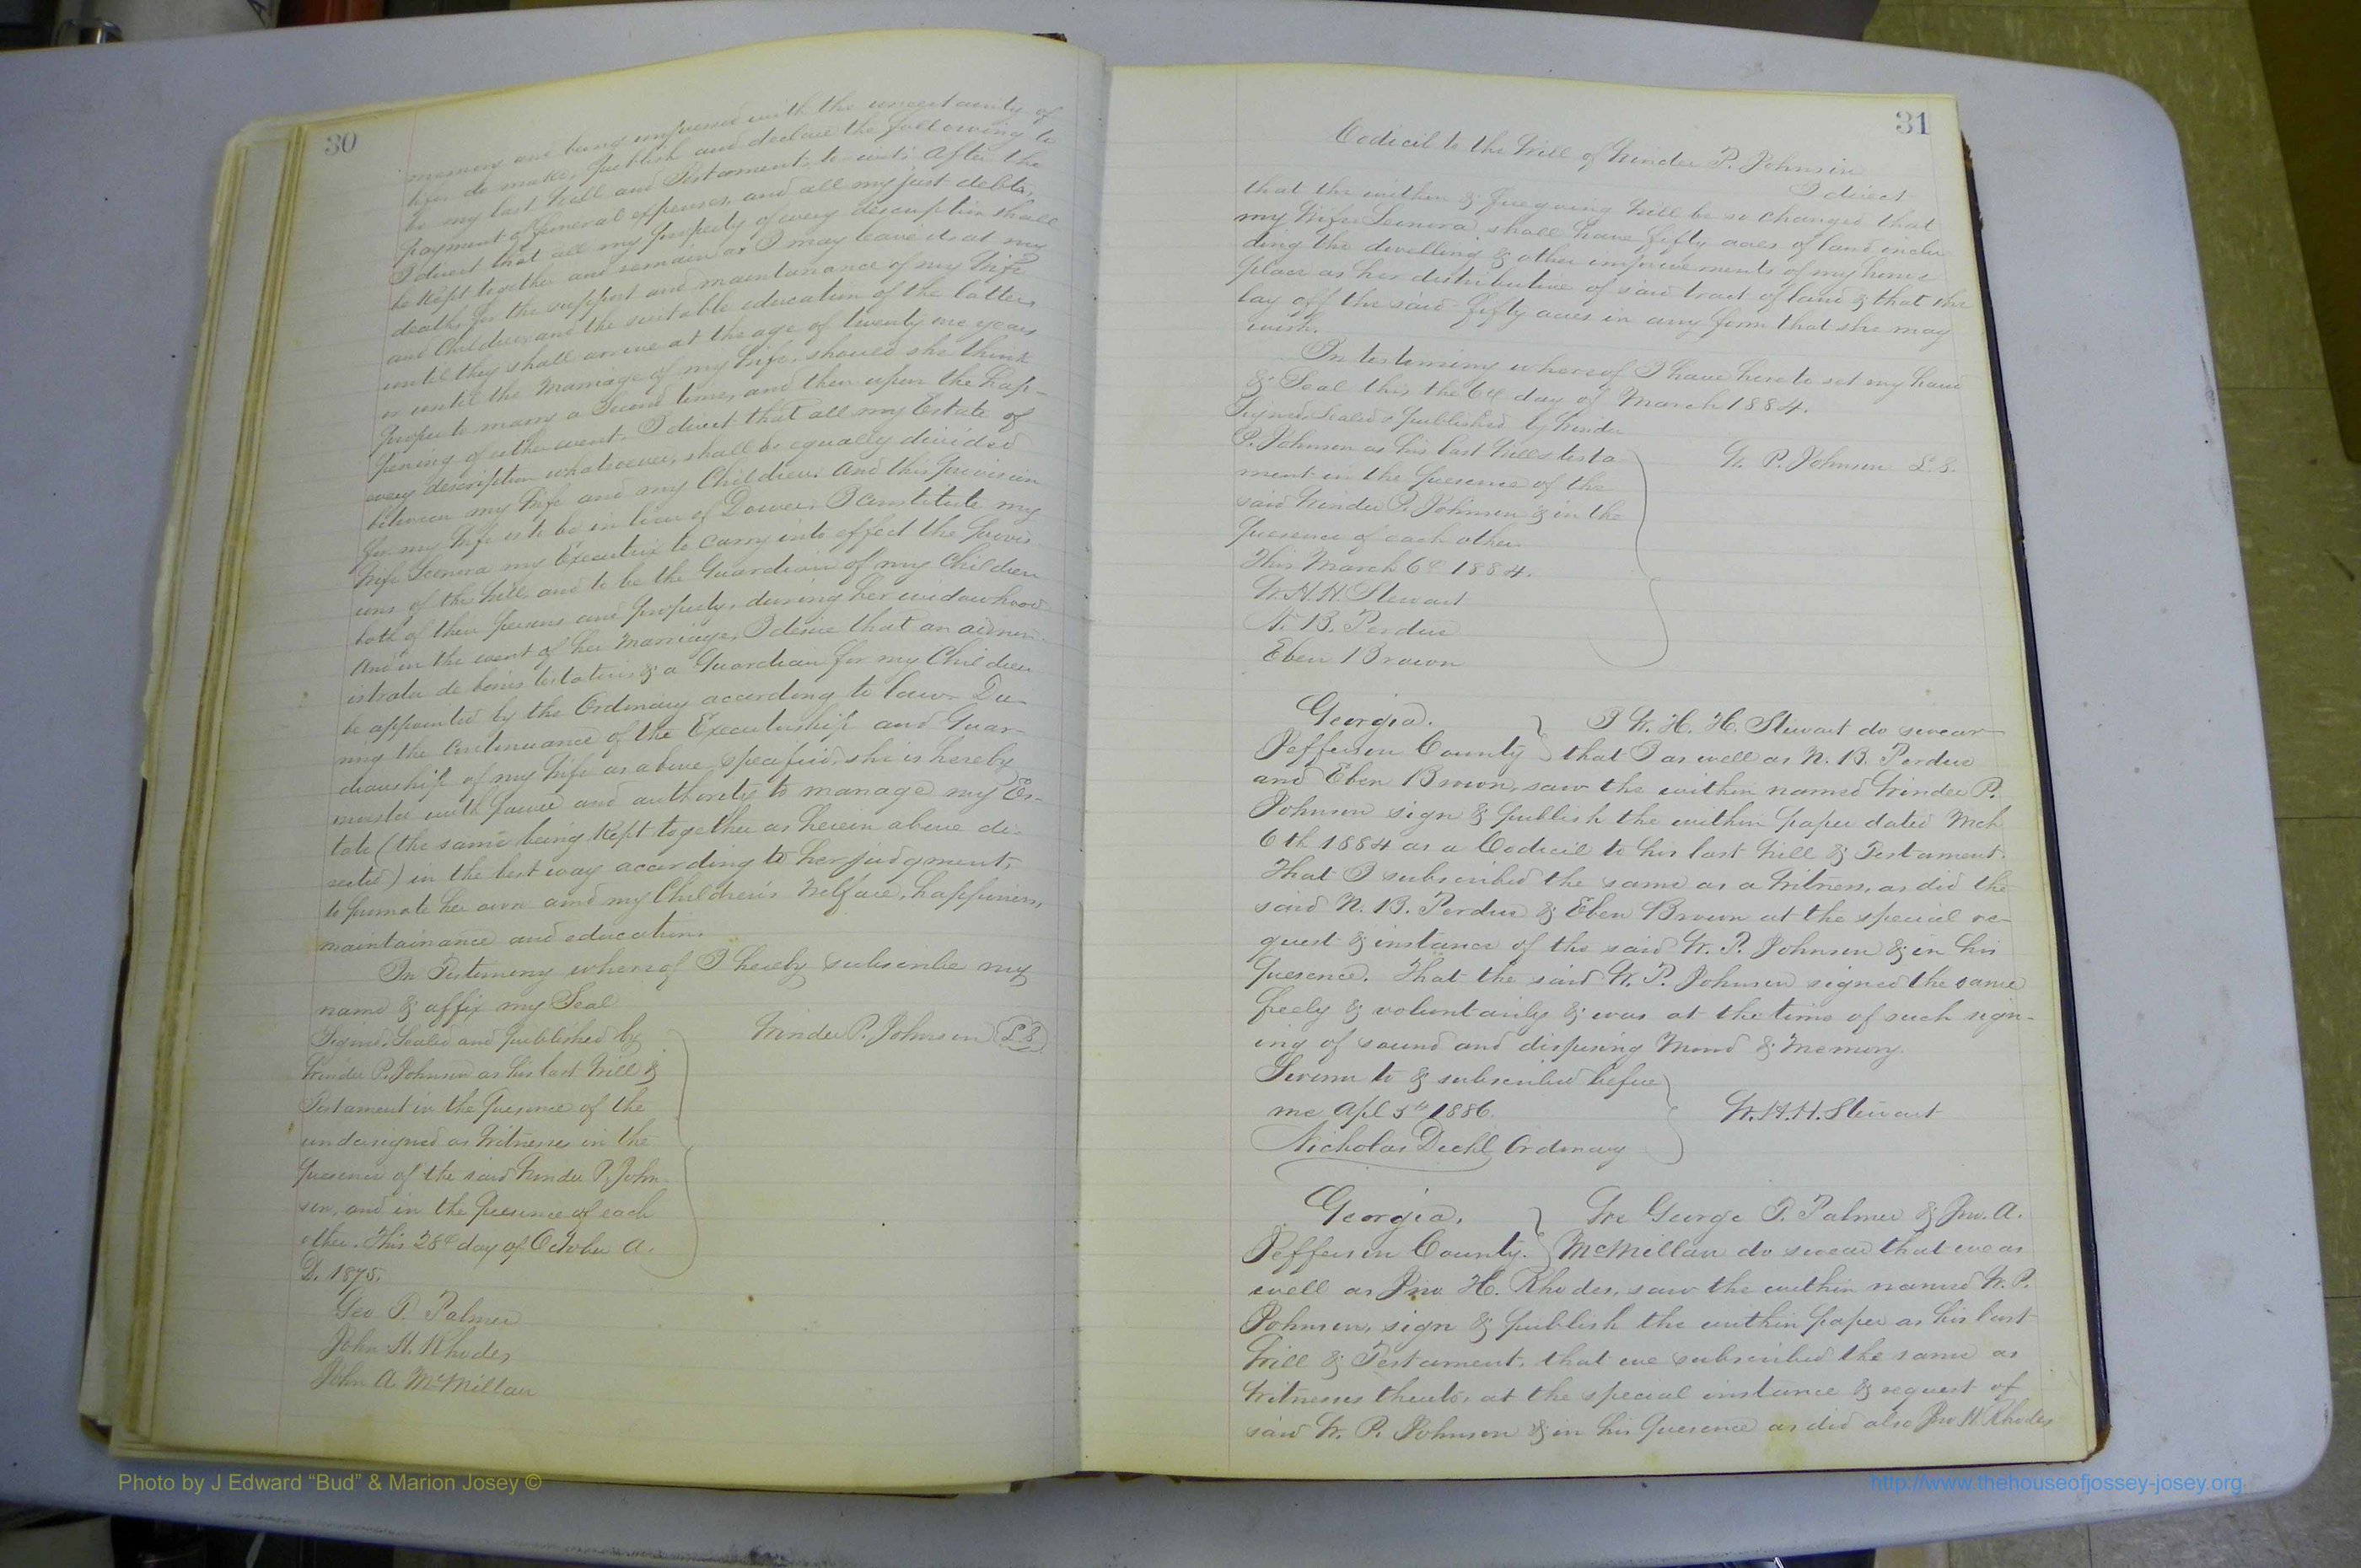 30
memory and being impressed with the uncertainty of
life, do make, publish and declare the following to
be my last Will and Testament, to-wit: After the
payment of funeral expenses, and all my just debts,
I direct that all my property of every description shall
be kept together and remain as I may leave it at my
death, for the support and maintanance of my Wife
and Children, and the suitable education of the latter,
until they shall arrive at the age of twenty one years
or until the Marriage of my Wife, should she think
proper to marry a Second time, and then upon the hap-
pening of either event, I direct that all my Estate of
every description whatsoever, shall be equally divided
between my Wife and my Children. And this provision
for my Wife is to be in lieu of Dower. I constitute my
Wife Leonora my Executrix to carry into effect the provis
ions of the Will and to be the Guardian of my Children
both of their persons and property, during her widowhood
And in the event of her Marriage, I desire that an admin-
istrator de bonis testatoris & a Guardian for my Children
be appointed by the Ordinary according to law. Du-
ring the Continuance of the Executorship and Guar-
dianship of my Wife as above specified, she is hereby
invested with power and authority to manage my Es-
tate (the same being kept together as herein above di-
rected) in the best way according to her judgment,
to promote her own and my Children's Welfare, happiness,
maintainance and education.
In Testimony whereof I hereby subscribe my
name & affix my Seal
Signed, Sealed and published by
Winder P. Johnson as his last Will &
Testament in the Presence of the
undersigned as Witnesses in the
presence of the said Winder P. John
son, and in the Presence of each
other. This 28th day of October A.
D. 1875.
Winder P. Johnson L.S.
Geo P. Palmer
John H. Rhodes
John A McMillan
31
Codicil to the Will of Winder P. Johnson
I direct
that the within & foregoing Will be so changed that
my Wife Leonora shall have fifty acres of land inclu
ding the dwelling & other improvements of my home
place as her distributive of said tract of land & that she
lay off the said fifty acres in any form that she may
wish.
In testimony whereof I have hereto set my hand
& Seal this the 6th day of March 1884.
Signed Sealed & published by Winder
P. Johnson as his last Will & testa
ment in the presence of the
said Winder P. Johnson & in the
presence of each other
This March 6th 1884.
W. P. Johnson L.S.
W.H.H. Stewart
N. B. Perdue
Eben Brown
Georgia. } I W. H. H. Stewart do swear
Jefferson County } that I as well as N. B. Perdue
and Eben Brown, saw the within named Winder P.
Johnson sign & publish the within paper dated Mch
6th 1884 as a Codicil to his last Will & Testament.
That I subscribed the same as a Witness, as did the
said N. B. Perdue & Eben Brown at the special re-
quest & instance of the said W. P. Johnson & in his
presence. That the said W. P. Johnson signed the same
freely & voluntarily & was at the time of such sign-
ing of sound and disposing Mind & Memory.
Sworn to & subscribed before
me Apl 5th 1886. W.H.H. Stewart
Nicholas Diehl Ordinary
Georgia, } We George P. Palmer & Jno. A.
Jefferson County. } McMillan do swear that we as
well as Jno H. Rhodes, saw the within named W. P.
Johnson, sign & publish the within paper as his last
Will & Testament, that we subscribed the same as
Witnesses thereto, at the special instance & request of
said W. P. Johnson & in his Presence as did also Jno H. Rhodes
Photo by J Edward “Bud” & Marion Josey ©
http://www.thehouseofjossey-josey.org